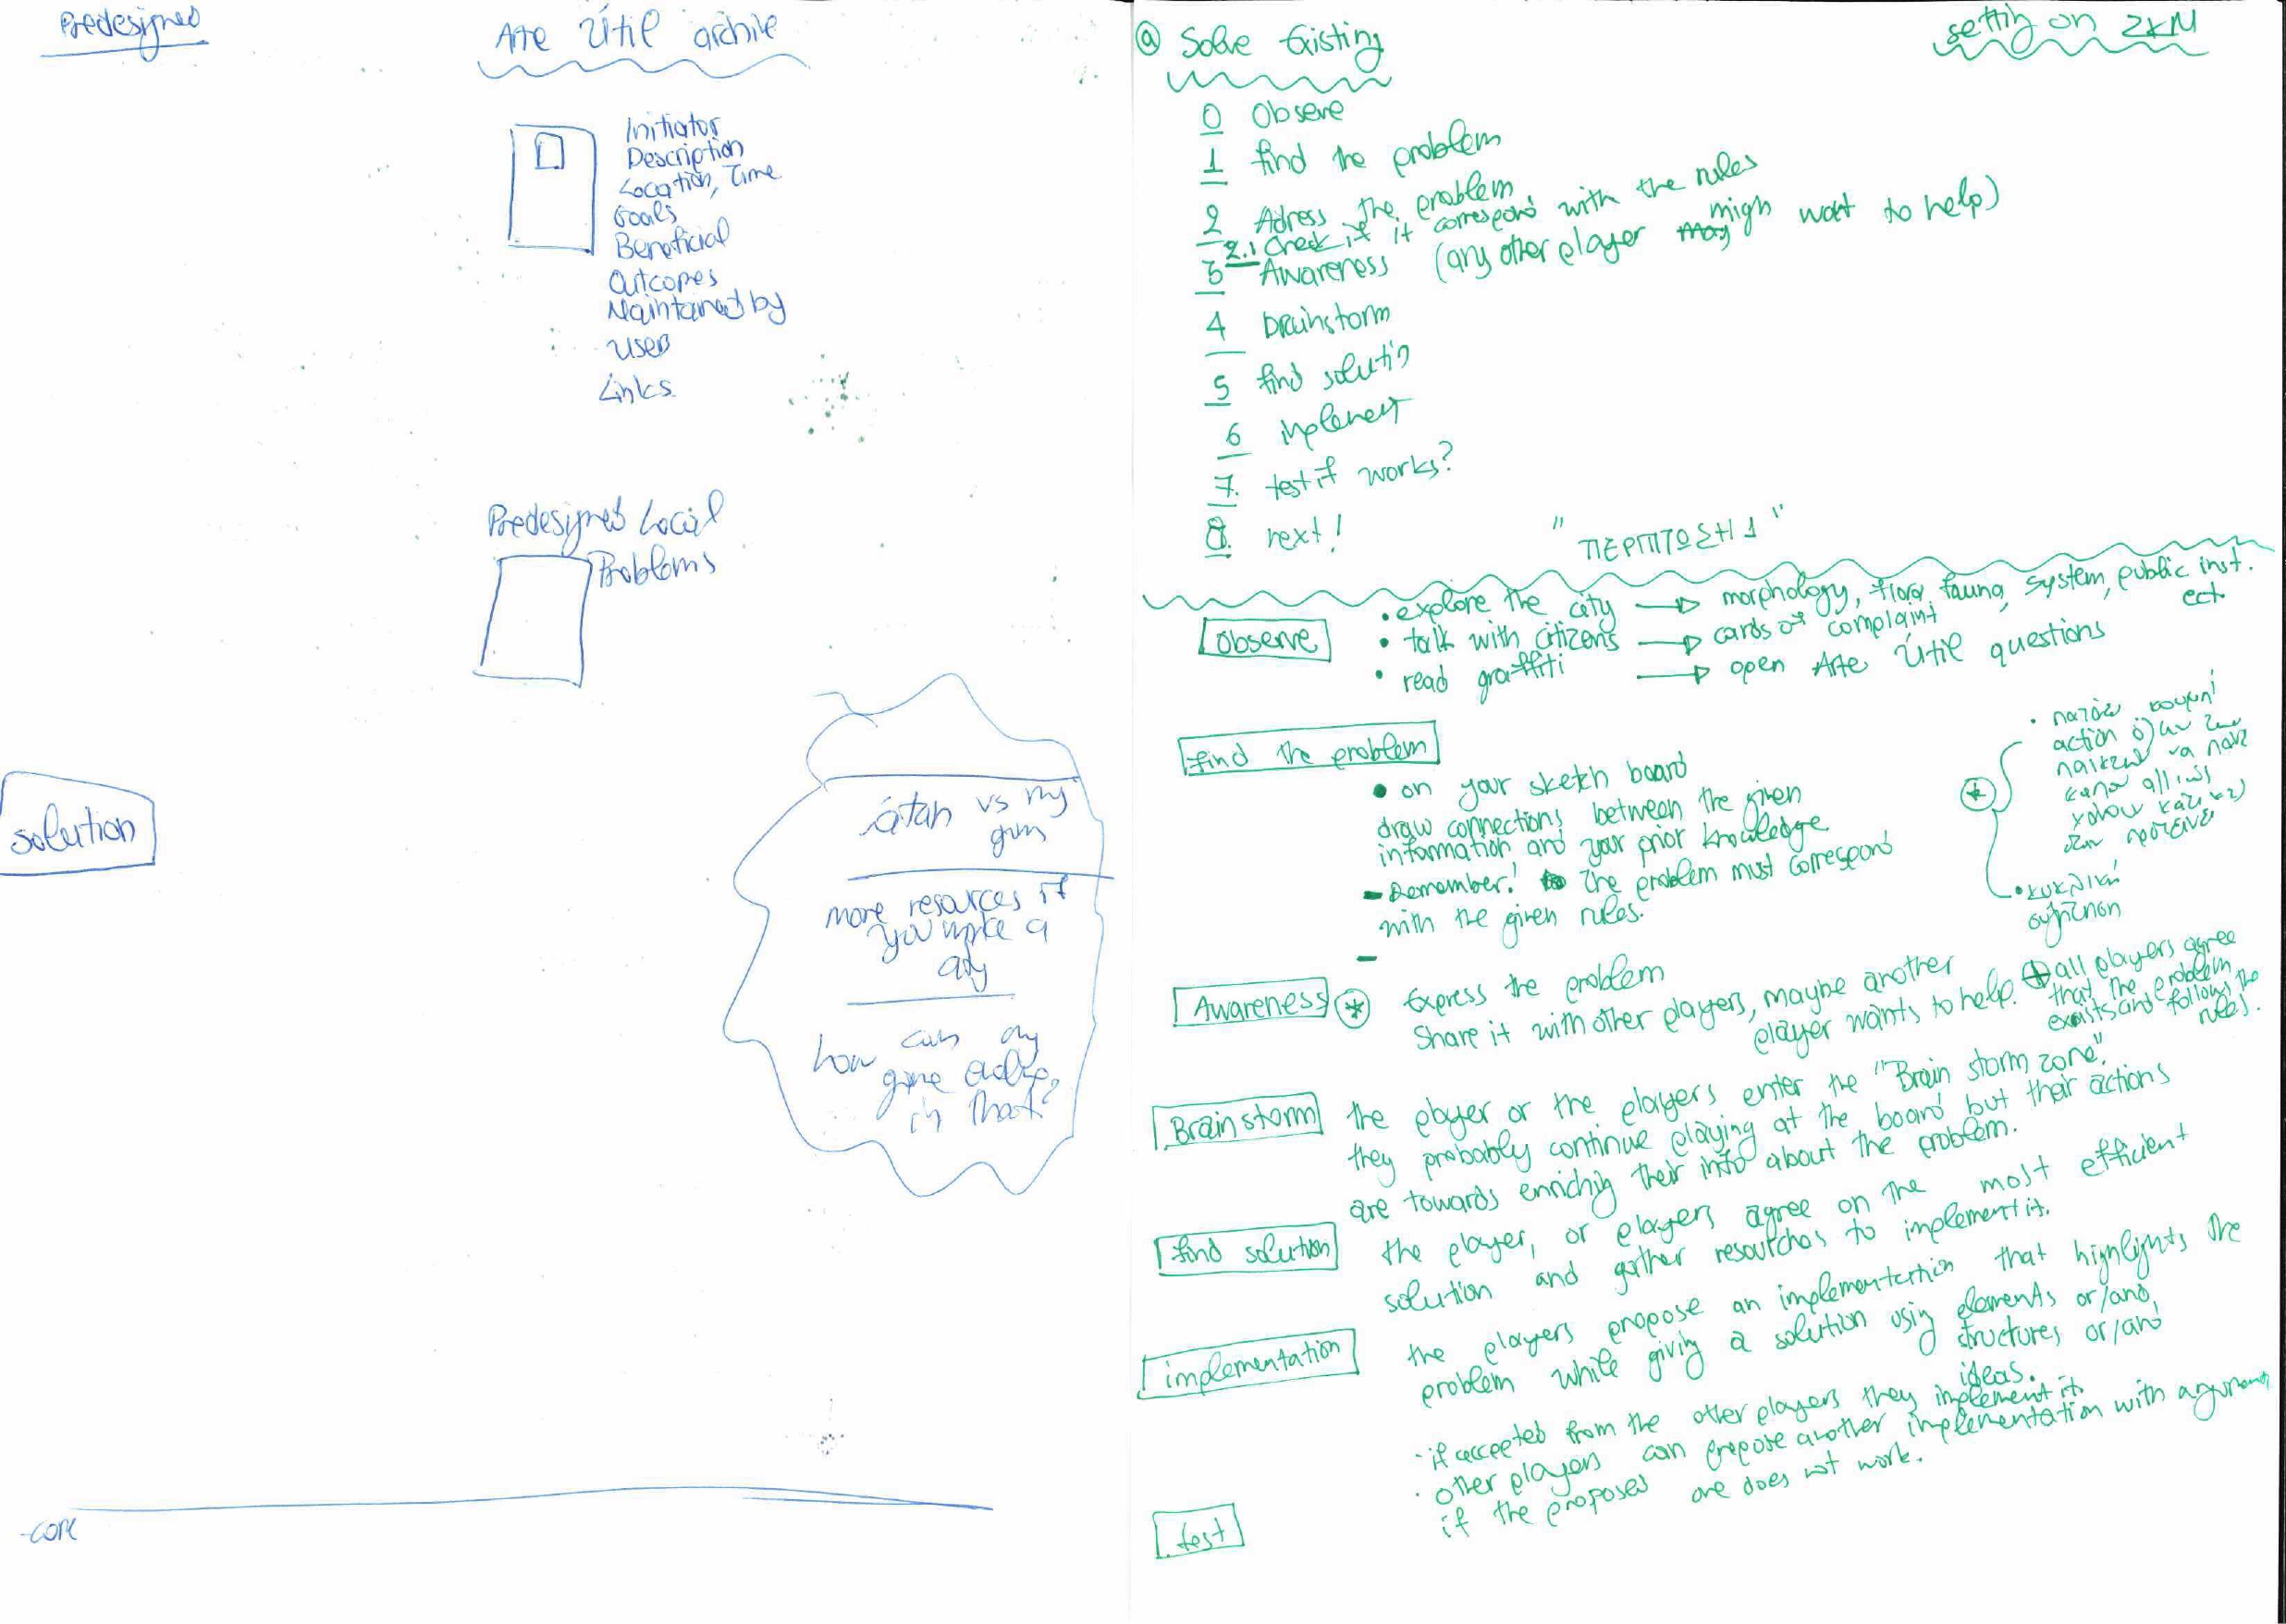 Predesigned
Arte Útil archive
Initiator
Description
Location, Time
Goals
Beneficial
Outcomes
Maintained by
Users
Links
Predesigned Local
Problems
solution
vs my
more resources if
you make a
how can my
game
in that?
-core
@ Solve Existing
setting on ZKM
0 Observe
1 find the problem
2 Adress the problem
2.1 check if it correspond with the rules
3 Awareness (any other player may migh want to help)
4 brainstorm
5 find solutin
6 implement
7. test if works?
8. next!
"ΠΕΡΠΤΩΣΗ 1"
Observe
• explore the city → morphology, flora, fauna, system, public inst.
ect.
• talk with citizens → cards of complaint
• read graffiti → open Arte Útil questions
find the problem
• on your sketch board
draw connections between the given
information, and your prior knowledge
- Remember! to the problem must correspond
with the given rules.
-
*
action
• κυκλική
Awareness * Express the problem
Share it with other players, maybe another
player wants to help. + all players agree
that the problem
exists and follows the
rules.
Brainstorm the player or the players enter the "Brain storm zone".
they probably continue playing at the board but their actions
are towards enrichig their info about the problem.
find solution the player, or players agree on the most efficient
solution and gather resourchas to implement it.
implementation the players propose an implementertion that highlights the
problem while givig a solution usig elements or/and,
structures or/and
ideas.
- if accepted from the other players they implement it.
• other players can propose another implementation with argument
if the proposes one does not work.
test